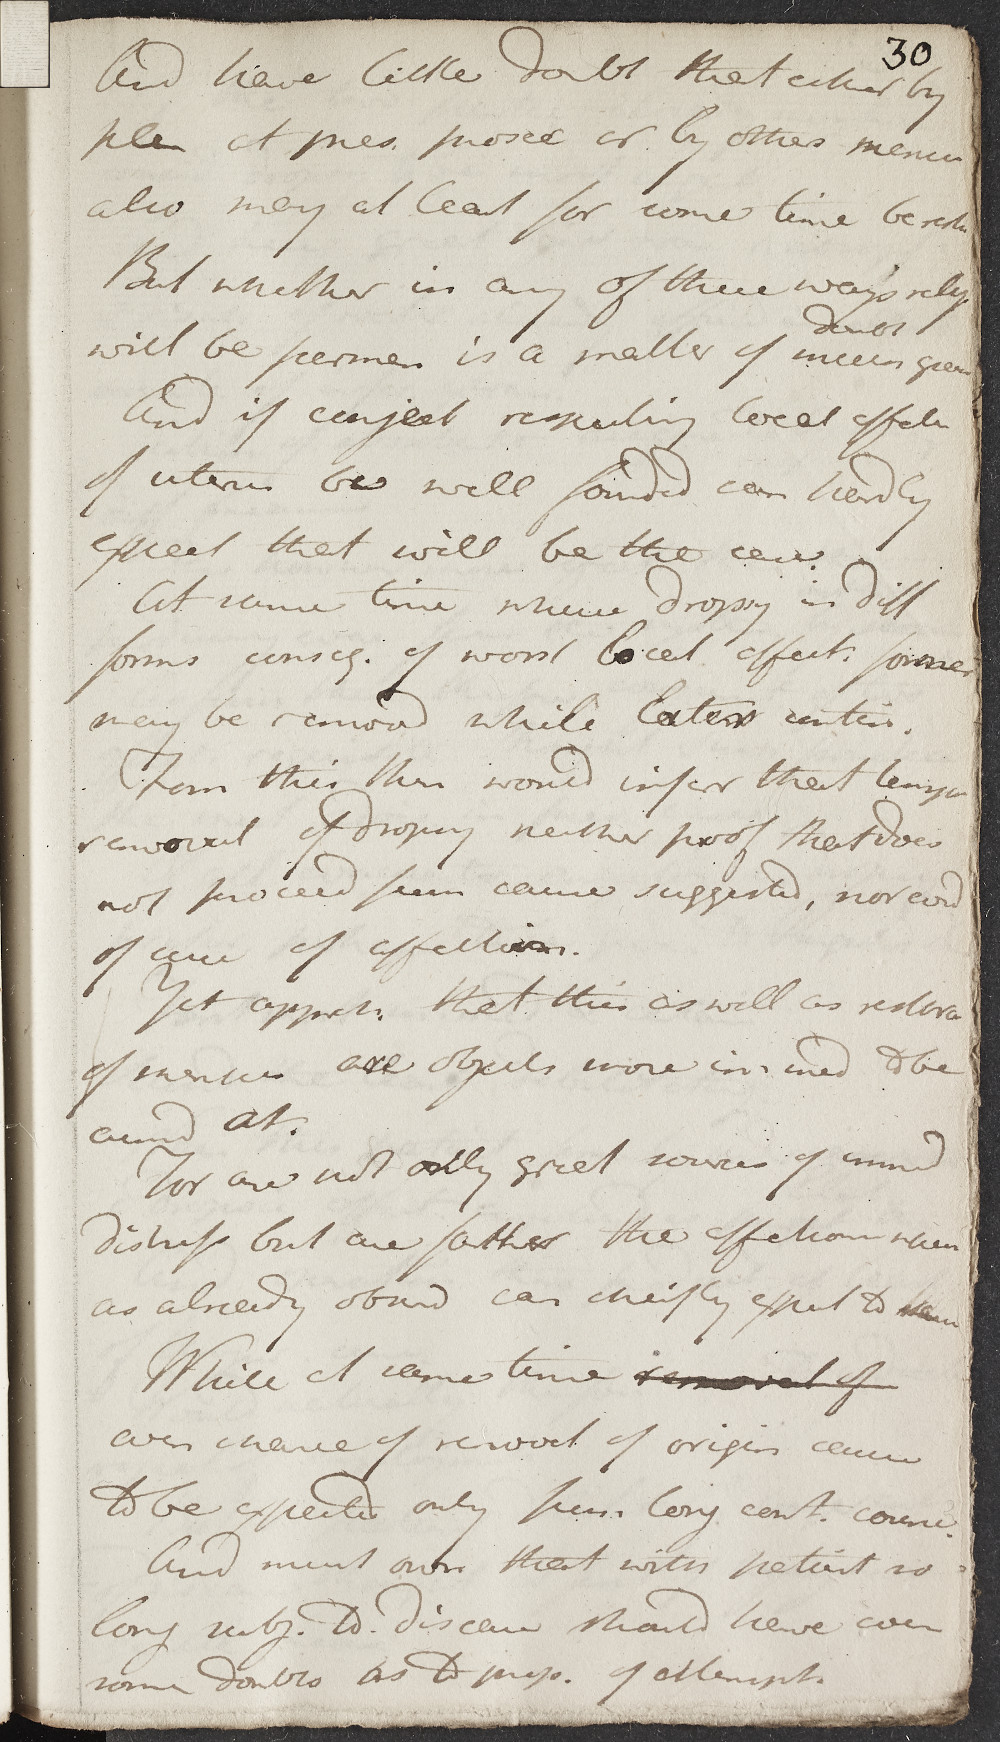 30
And have little doubt that either by
plan at pres. prosec or by others menses
also may at least for some time be resto
But whether in any of these ways relief
doubt
will be perman is a matter of much
And if conject respecting local affect
of uterus be well founded can hardly
expect that will be the case.
At same time where dropsy in diff
forms conseq. of worst local affect. former
may be removd while latter contin.
From this then would infer that tempor
removal of dropsy neither proof that does
not proceed from cause suggested, nor evid
of cure of affection.
Yet appreh. that this as well as restora
of menses are objects more immed to be
aimd at.
For are not only great sources of immed
distress but are farther the affections when
as already obsevd can cheifly expect to
While at same time removal of
even chance of removal of origin cause
to be expected only from long cont. course.
And must own that with patient so
long subj. to disease should have even
some doubts as to prop. of attempt.